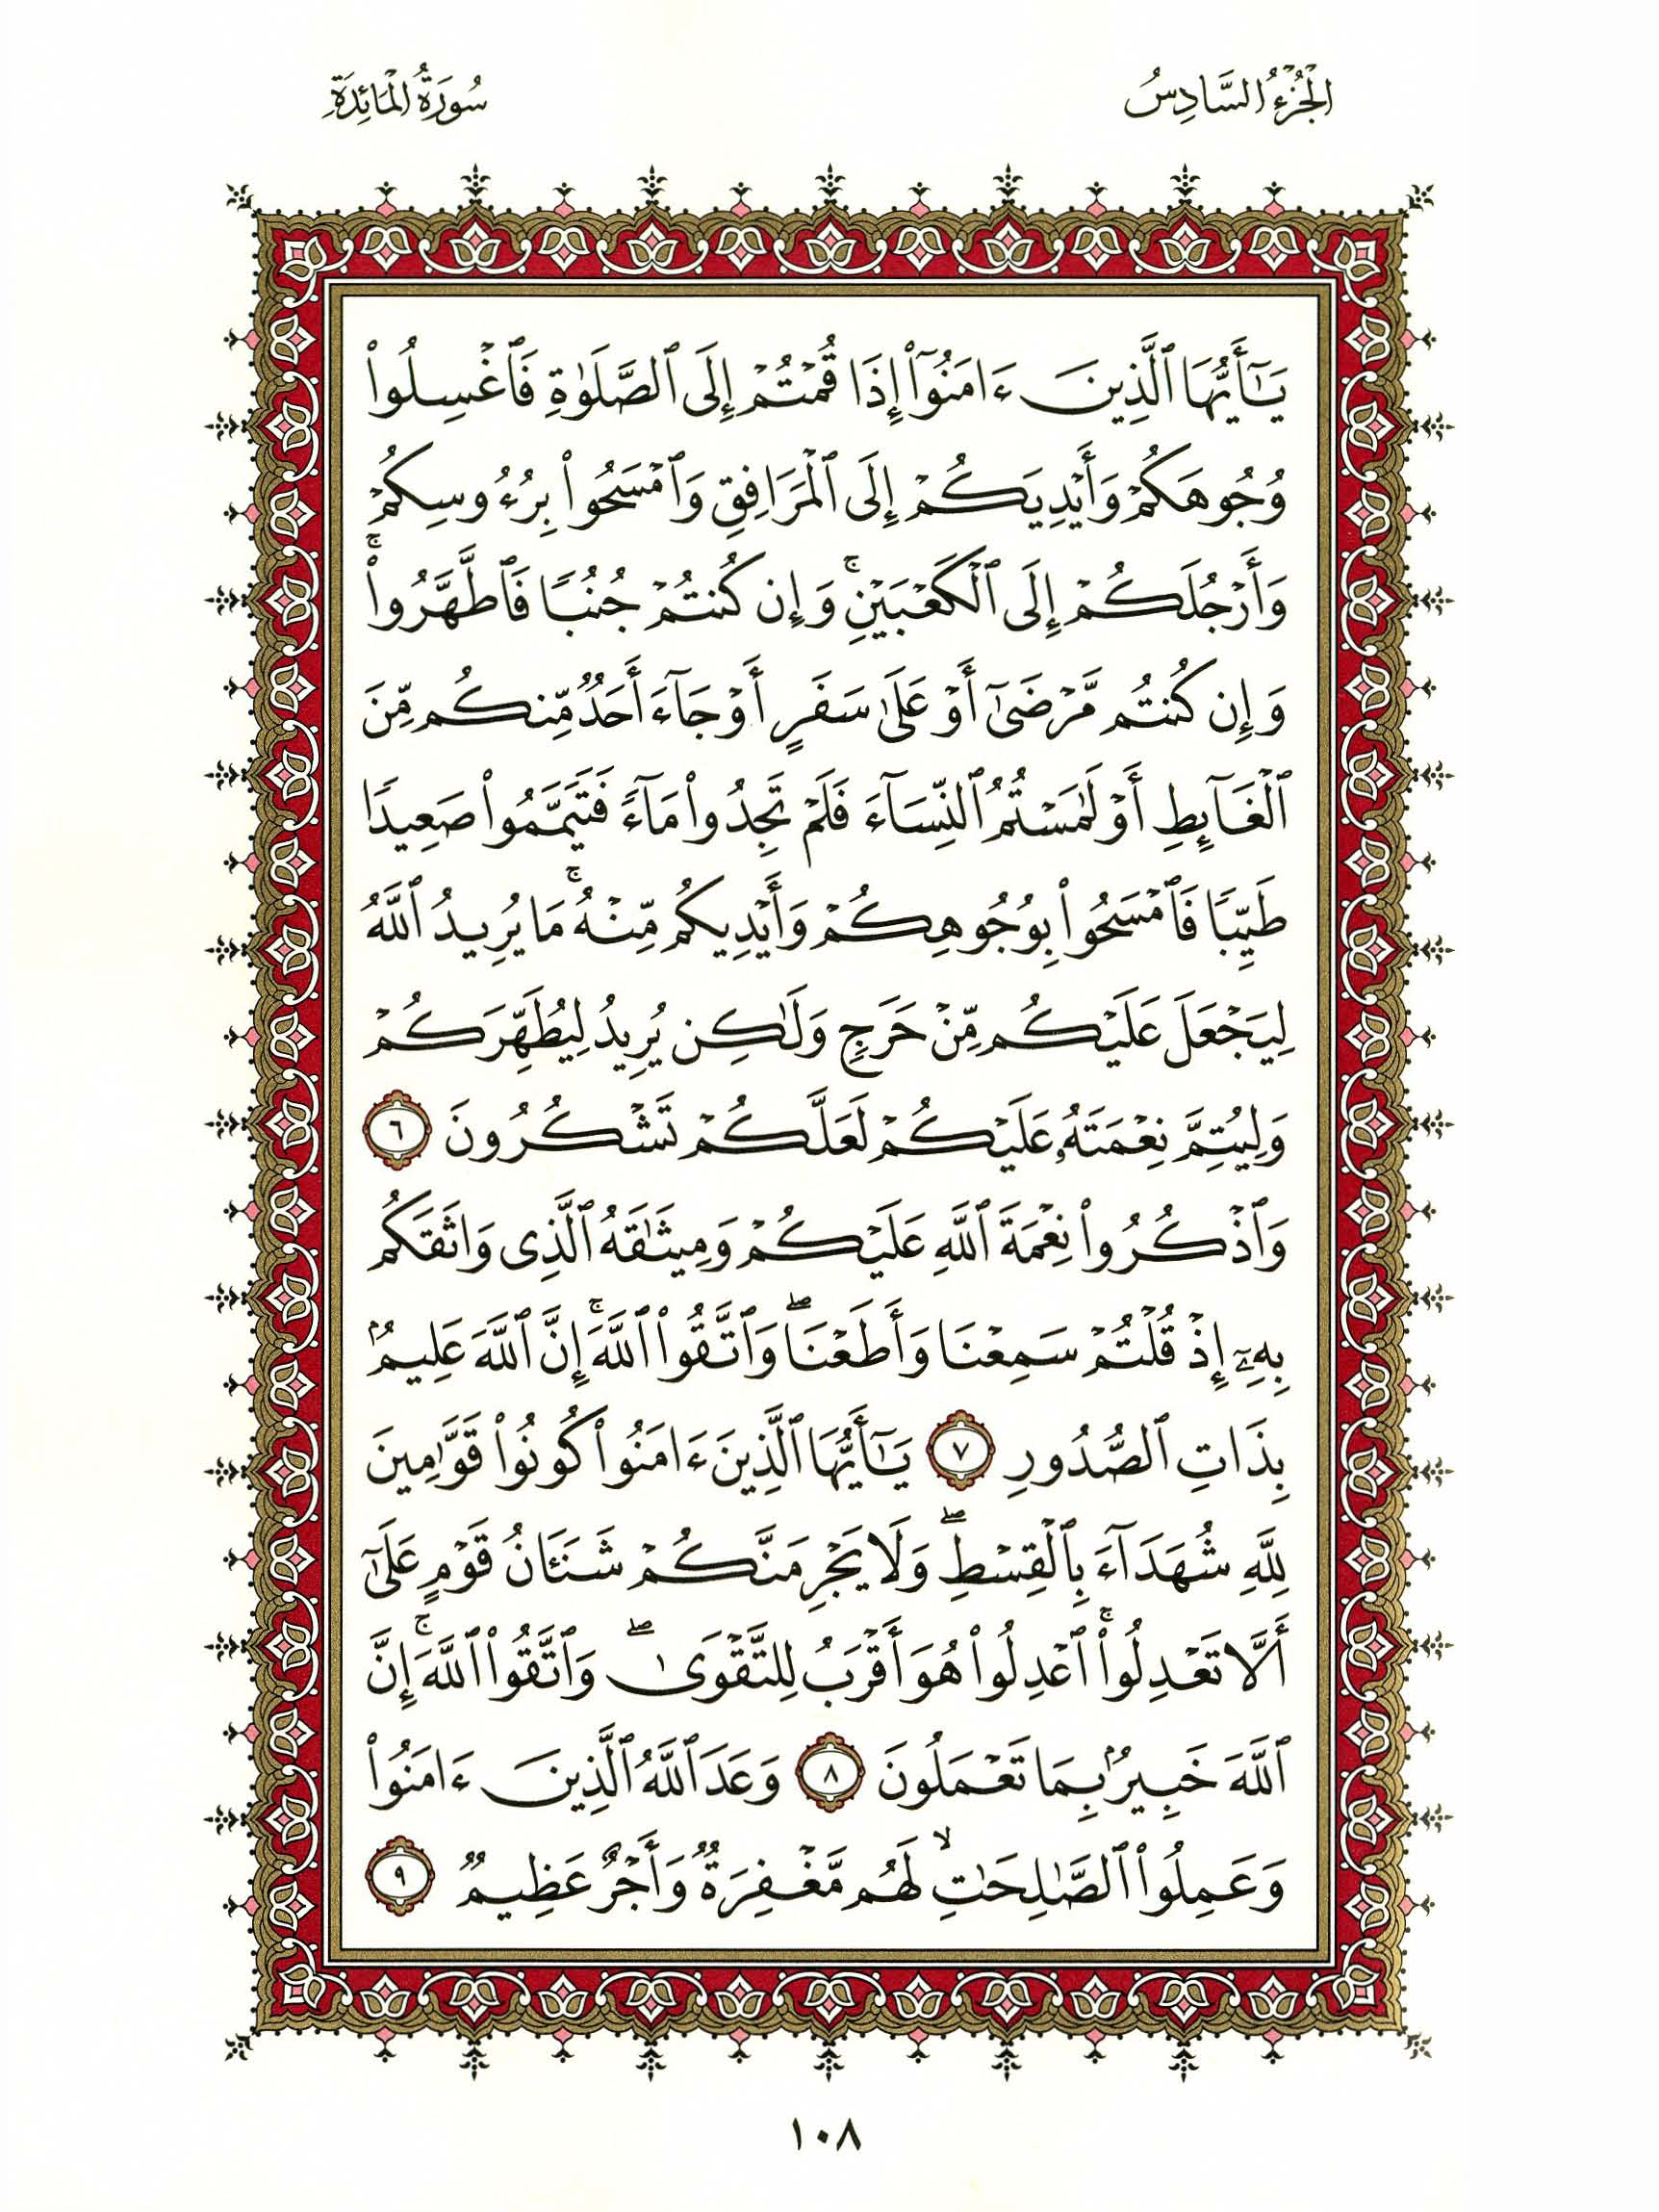 الجُزْءُ السَّادِسُ
سُورَةُ المَائِدَةِ
يَٰٓأَيُّهَا ٱلَّذِينَ ءَامَنُوٓا۟ إِذَا قُمْتُمْ إِلَى ٱلصَّلَوٰةِ فَٱغْسِلُوا۟
وُجُوهَكُمْ وَأَيْدِيَكُمْ إِلَى ٱلْمَرَافِقِ وَٱمْسَحُوا۟ بِرُءُوسِكُمْ
وَأَرْجُلَكُمْ إِلَى ٱلْكَعْبَيْنِ ۚ وَإِن كُنتُمْ جُنُبًا فَٱطَّهَّرُوا۟ ۚ
وَإِن كُنتُم مَّرْضَىٰٓ أَوْ عَلَىٰ سَفَرٍ أَوْ جَآءَ أَحَدٌ مِّنكُم مِّنَ
ٱلْغَآئِطِ أَوْ لَٰمَسْتُمُ ٱلنِّسَآءَ فَلَمْ تَجِدُوا۟ مَآءً فَتَيَمَّمُوا۟ صَعِيدًا
طَيِّبًا فَٱمْسَحُوا۟ بِوُجُوهِكُمْ وَأَيْدِيكُم مِّنْهُ ۚ مَا يُرِيدُ ٱللَّهُ
لِيَجْعَلَ عَلَيْكُم مِّنْ حَرَجٍ وَلَٰكِن يُرِيدُ لِيُطَهِّرَكُمْ
وَلِيُتِمَّ نِعْمَتَهُۥ عَلَيْكُمْ لَعَلَّكُمْ تَشْكُرُونَ ٦
وَٱذْكُرُوا۟ نِعْمَةَ ٱللَّهِ عَلَيْكُمْ وَمِيثَٰقَهُ ٱلَّذِى وَاثَقَكُم
بِهِۦٓ إِذْ قُلْتُمْ سَمِعْنَا وَأَطَعْنَا ۖ وَٱتَّقُوا۟ ٱللَّهَ ۚ إِنَّ ٱللَّهَ عَلِيمٌۢ
بِذَاتِ ٱلصُّدُورِ ٧ يَٰٓأَيُّهَا ٱلَّذِينَ ءَامَنُوا۟ كُونُوا۟ قَوَّٰمِينَ
لِلَّهِ شُهَدَآءَ بِٱلْقِسْطِ ۖ وَلَا يَجْرِمَنَّكُمْ شَنَـَٔانُ قَوْمٍ عَلَىٰٓ
أَلَّا تَعْدِلُوا۟ ۚ ٱعْدِلُوا۟ هُوَ أَقْرَبُ لِلتَّقْوَىٰ ۖ وَٱتَّقُوا۟ ٱللَّهَ ۚ إِنَّ
ٱللَّهَ خَبِيرٌۢ بِمَا تَعْمَلُونَ ٨ وَعَدَ ٱللَّهُ ٱلَّذِينَ ءَامَنُوا۟
وَعَمِلُوا۟ ٱلصَّٰلِحَٰتِ ۙ لَهُم مَّغْفِرَةٌ وَأَجْرٌ عَظِيمٌ ٩
١٠٨